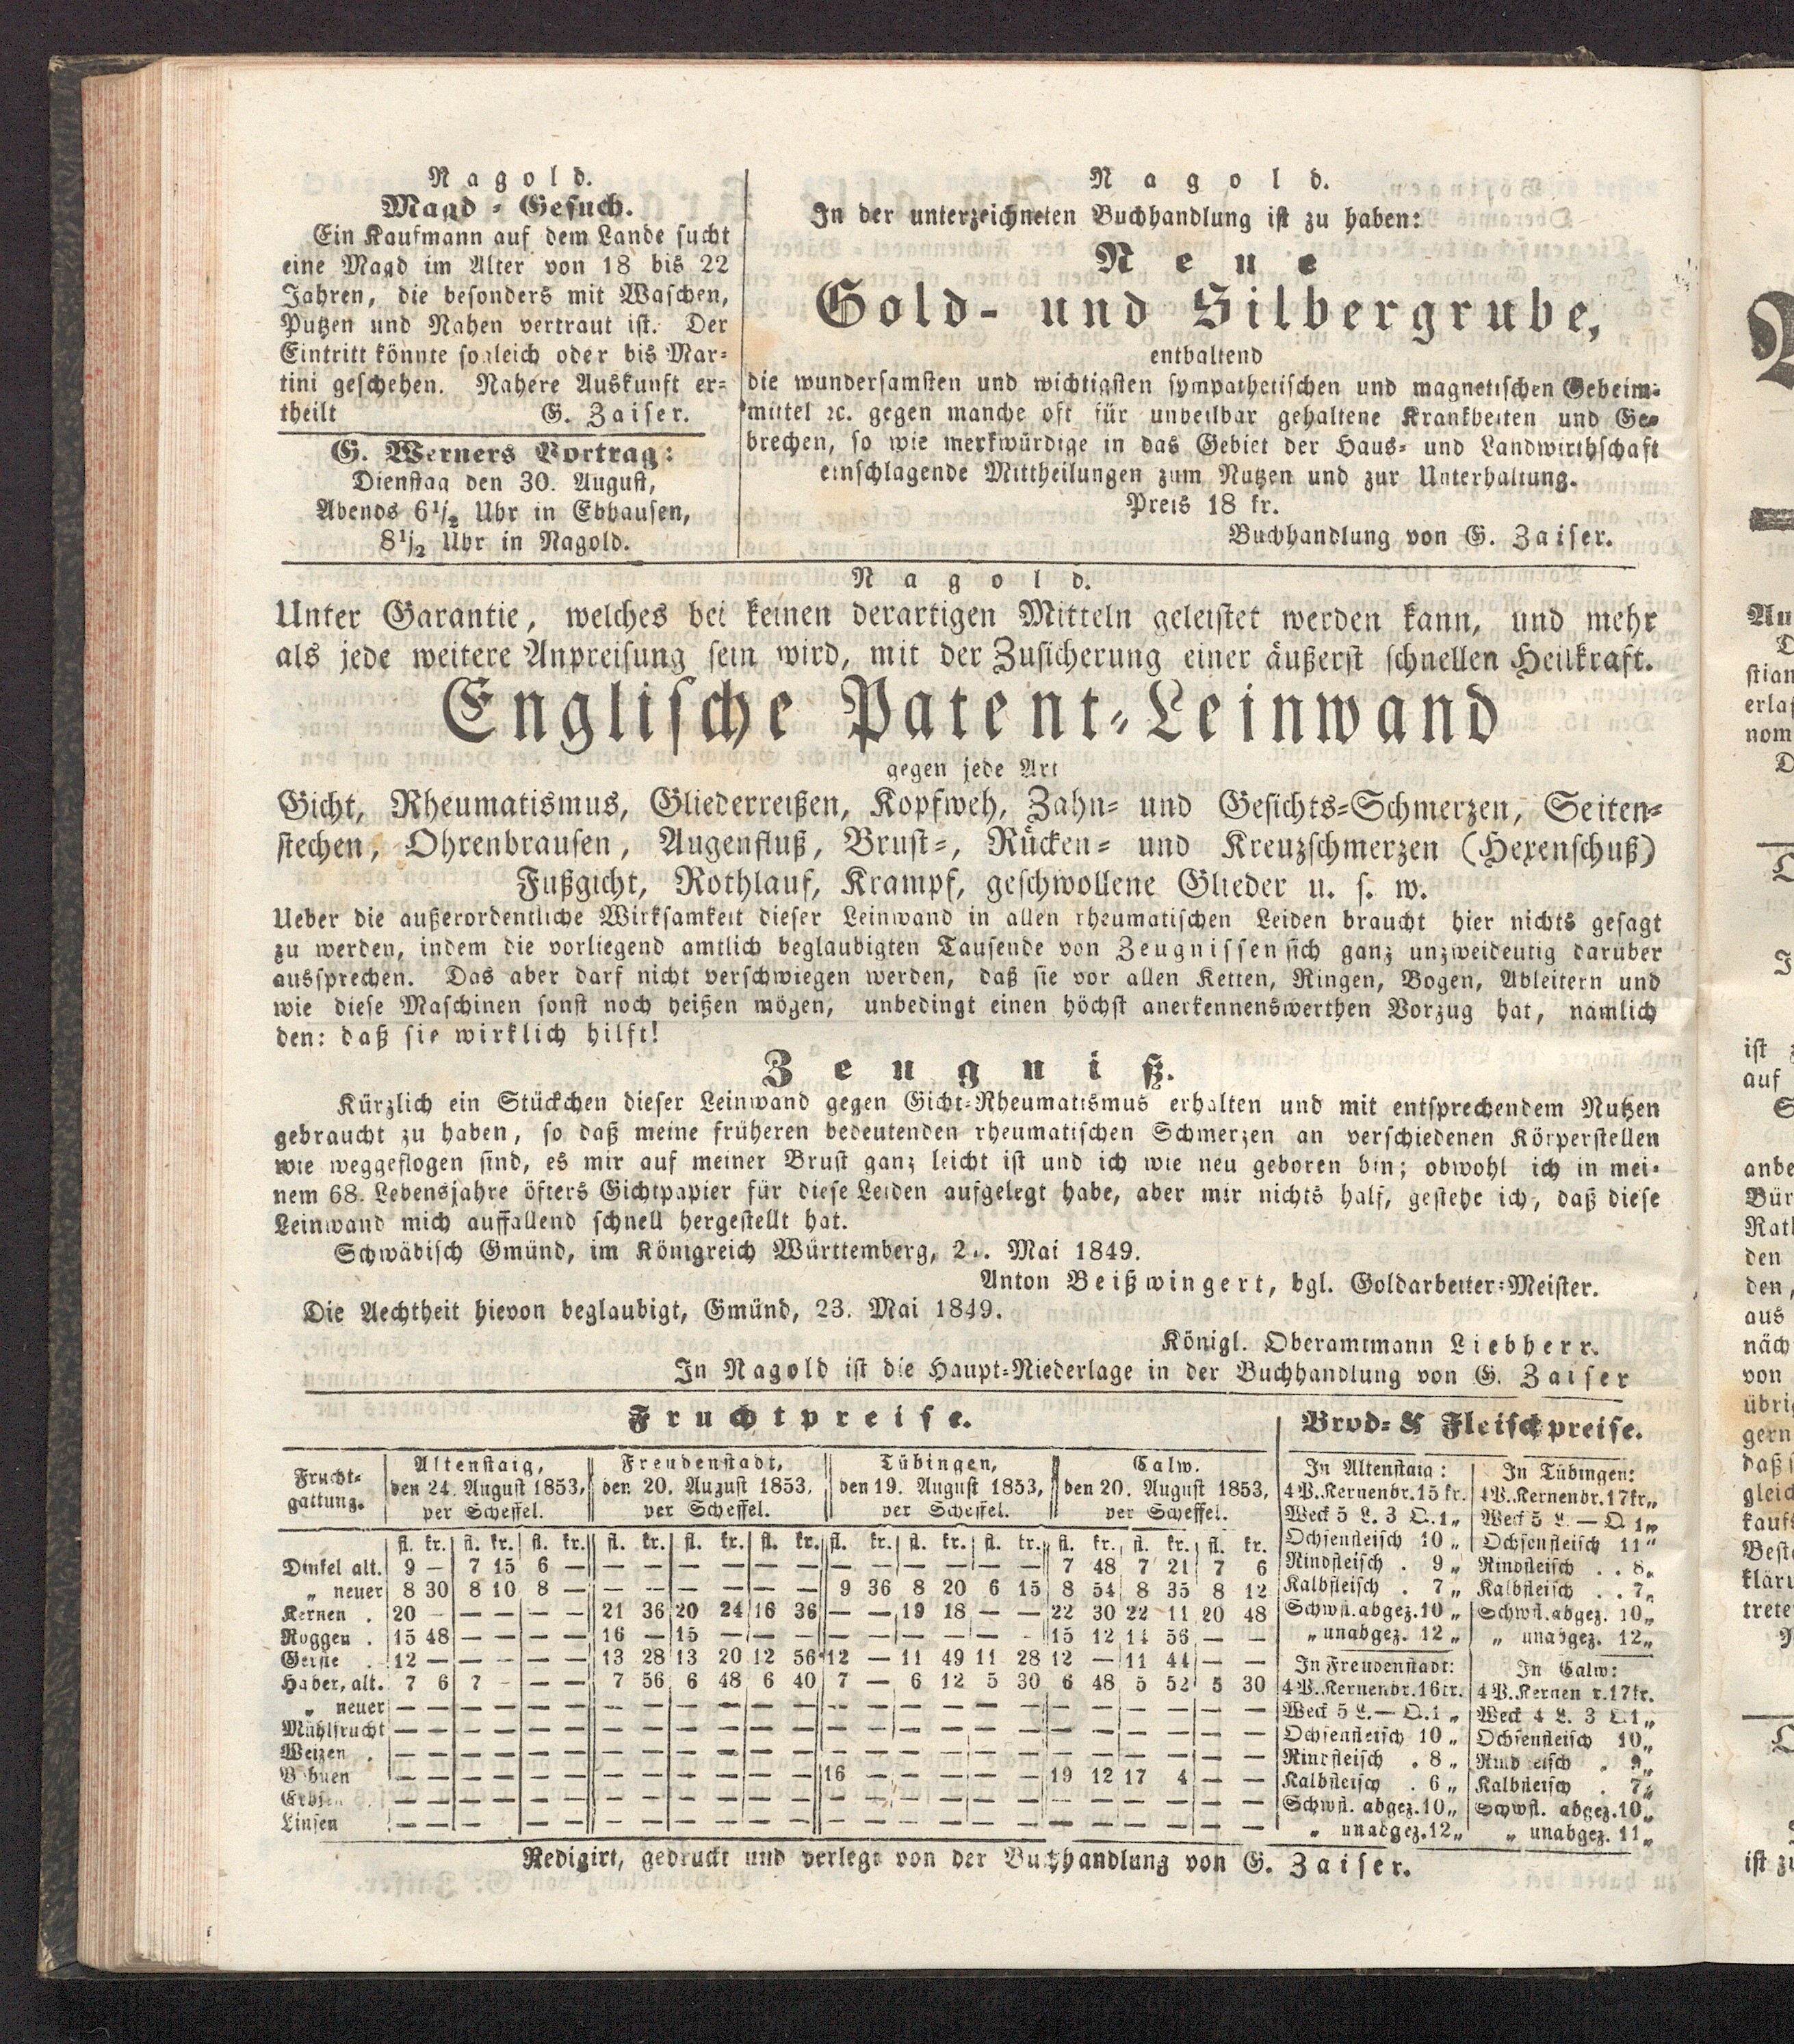 Nagold.
Magd-Gesuch.
Ein Kaufmann auf dem Lande sucht
eine Magd im Alter von 18 bis 22
Jahren, die besonders mit Waschen,
Putzen und Nähen vertraut ist. Der
Eintritt könnte sogleich oder bis Mar-
tini geschehen. Nähere Auskunft er-
theilt G. Zaiser.
G. Werners Vortrag:
Dienstag den 30. August,
Abends 6 1/2 Uhr in Ebhausen,
8 1/2 Uhr in Nagold.
Nagold.
In der unterzeichneten Buchhandlung ist zu haben:
Neue
Gold- und Silbergrube,
enthaltend
die wundersamsten und wichtigsten sympathetischen und magnetischen Geheim-
mittel ꝛc. gegen manche oft für unheilbar gehaltene Krankheiten und Ge-
brechen, so wie merkwürdige in das Gebiet der Haus- und Landwirthschaft
einschlagende Mittheilungen zum Nutzen und zur Unterhaltung.
Preis 18 kr.
Buchhandlung von G. Zaiser.
Nagold.
Unter Garantie, welches bei keinen derartigen Mitteln geleistet werden kann, und mehr
als jede weitere Anpreisung sein wird, mit der Zusicherung einer äußerst schnellen Heilkraft.
Englische Patent-Leinwand
gegen jede Art
Gicht, Rheumatismus, Gliederreißen, Kopfweh, Zahn- und Gesichts-Schmerzen, Seiten-
stechen, Ohrenbrausen, Augenfluß, Brust-, Rücken- und Kreuzschmerzen (Hexenschuß)
Fußgicht, Rothlauf, Krampf, geschwollene Glieder u. s. w.
Ueber die außerordentliche Wirksamkeit dieser Leinwand in allen rheumatischen Leiden braucht hier nichts gesagt
zu werden, indem die vorliegend amtlich beglaubigten Tausende von Zeugnissen sich ganz unzweideutig darüber
aussprechen. Das aber darf nicht verschwiegen werden, daß sie vor allen Ketten, Ringen, Bogen, Ableitern und
wie diese Maschinen sonst noch heißen mögen, unbedingt einen höchst anerkennenswerthen Vorzug hat, nämlich
den: daß sie wirklich hilft!
Zeugniß.
Kürzlich ein Stückchen dieser Leinwand gegen Gicht-Rheumatismus erhalten und mit entsprechendem Nutzen
gebraucht zu haben, so daß meine früheren bedeutenden rheumatischen Schmerzen an verschiedenen Körperstellen
wie weggeflogen sind, es mir auf meiner Brust ganz leicht ist und ich wie neu geboren bin; obwohl ich in mei-
nem 68. Lebensjahre öfters Gichtpapier für diese Leiden aufgelegt habe, aber mir nichts half, gestehe ich, daß diese
Leinwand mich auffallend schnell hergestellt hat.
Schwäbisch Gmünd, im Königreich Württemberg, Mai 1849.
Anton Beißwingert, bgl. Goldarbeiter-Meister.
Die Aechtheit hievon beglaubigt, Gmünd, 23. Mai 1849.
Königl. Oberamtmann Liebherr.
In Nagold ist die Haupt-Niederlage in der Buchhandlung von G. Zaiser
Fruchtpreise.
Frucht-gattung. | Altenstaig, den 24. August 1853, per Scheffel. | Freudenstadt, den 20. August 1853, per Scheffel. | Tübingen, den 19. August 1853, per Scheffel. | Calw. den 20. August 1853, per Scheffel.
fl. kr. fl. kr. fl. kr. | fl. kr. fl. kr. fl. kr. | fl. kr. fl. kr. fl. kr. | fl. kr. fl. kr. fl. kr.
Dinkel alt. 9 — 7 15 6 — | — — — — — — | — — — — — — | 7 48 7 21 7 6
„ neuer 8 30 8 10 8 — | — — — — — — | 9 36 8 20 6 15 | 8 54 8 35 8 12
Kernen . 20 — — — — — | 21 36 20 24 16 36 | — — 19 18 — — | 22 30 22 11 20 48
Roggen . 15 48 — — — — | 16 — 15 — — — | — — — — — — | 15 12 14 56 — —
Gerste . 12 — — — — — | 13 28 13 20 12 56 | 12 — 11 49 11 28 | 12 — 11 44 — —
Haber, alt. 7 6 7 — — — | 7 56 6 48 6 40 | 7 — 6 12 5 30 | 6 48 5 52 5 30
„ neuer — — — — — — | — — — — — — | — — — — — — | — — — — — —
Mühlfrucht — — — — — — | — — — — — — | — — — — — — | — — — — — —
Weizen . — — — — — — | — — — — — — | — — — — — — | — — — — — —
Bohnen — — — — — — | — — — — — — | 16 — — — — — | 19 12 17 4 — —
Erbsen — — — — — — | — — — — — — | — — — — — — | — — — — — —
Linsen — — — — — — | — — — — — — | — — — — — — | — — — — — —
Brod- & Fleischpreise.
In Altenstaig:
4 P. Kernenbr. 15 kr.
Weck 5 L. 3 Q. 1 „
Ochsenfleisch 10 „
Rindfleisch . 9 „
Kalbfleisch . 7 „
Schwfl. abgez. 10 „
„ unabgez. 12 „
In Freudenstadt:
4 P. Kernenbr. 16 kr.
Weck 5 L. — Q. 1 „
Ochsenfleisch 10 „
Rindfleisch . 8 „
Kalbfleisch . 6 „
Schwfl. abgez. 10 „
„ unabgez. 12 „
In Tübingen:
4 P. Kernenbr. 17 kr „
Weck 5 L. — Q. 1 „
Ochsenfleisch 11 „
Rindfleisch . . 8 „
Kalbfleisch . . 7 „
Schwfl. abgez. 10 „
„ unabgez. 12 „
In Calw:
4 P. Kernenbr. 17 kr.
Weck 4 L. 3 Q. 1 „
Ochsenfleisch 10 „
Rindfleisch . 9 „
Kalbfleisch . 7 „
Schwfl. abgez. 10 „
„ unabgez. 11 „
Redigirt, gedruckt und verlegt von der Buchhandlung von G. Zaiser.